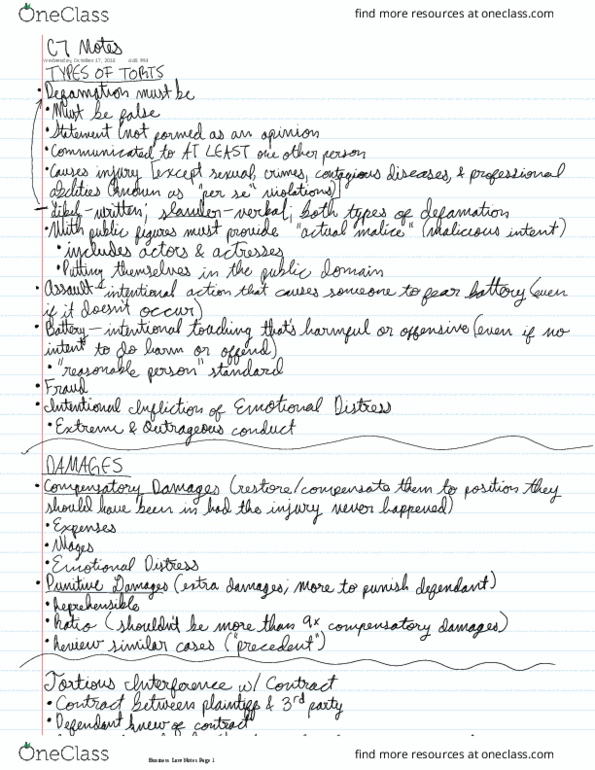 OneClass
find more resources at oneclass.com
C7 Notes
Wednesday, October 17, 2018 4:48 PM
TYPES OF TORTS
• Defamation must be
• Must be false
• Statement (not formed as an opinion
• Communicated to AT LEAST one other person
• Causes injury [except sexual crimes, contagious diseases, & professional
abilities (known as "per se" violations)]
– Libel – written; slander – verbal; both types of defamation
• With public figures must provide "actual malice" (malicious intent)
• includes actors & actresses
• Putting themselves in the public domain
• Assault – intentional action that causes someone to fear battery (even
if it doesn't occur)
• Battery – intentional touching that's harmful or offensive (even if no
intent to do harm or offend)
• "reasonable person" standard
• Fraud
• Intentional Infliction of Emotional Distress
• Extreme & Outrageous conduct
DAMAGES
• Compensatory Damages (restore/compensate them to position they
should have been in had the injury never happened)
• Expenses
• Wages
• Emotional Distress
• Punitive Damages (extra damages; more to punish defendant)
• Reprehensible
• Ratio (shouldn't be more than 9x compensatory damages)
• Review similar cases ("precedent")
Tortious Interference w/ Contract
• Contract between plaintiff & 3rd party
• Defendant knew of contract
OneClass
Business Law Notes Page 1
find more resources at oneclass.com